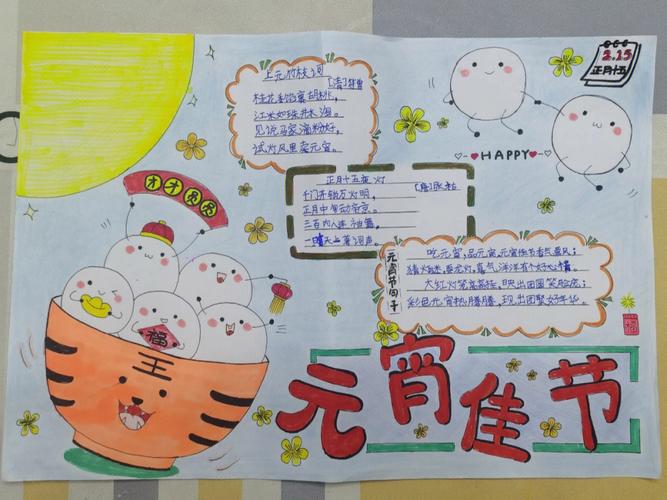 上元竹枝词
[清]符曾
桂花香馅裹胡桃,
江米如珠井水淘。
见说马家滴粉好,
试灯风里卖元宵。
2.15
正月十五
HAPPY
正月十五夜灯
[唐]张祜
千门开锁万灯明,
正月中旬动帝京。
三百内人连袖舞,
一时天上著词声。
团团圆圆
元宵节句子
吃元宵,品元宵,元宵佳节香气盈风;
喜气洋洋有个好心情。
大红灯笼高高挂,映出团圆笑脸庞;
彩色元宵热腾腾,现出团聚好年华。
福
王
福
元宵佳节